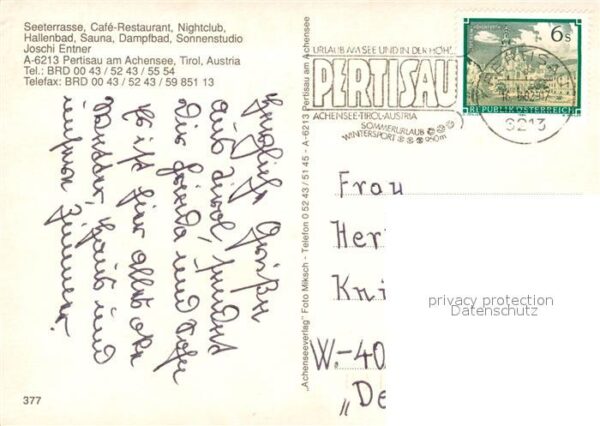 Seeterrasse, Café-Restaurant, Nightclub,
Hallenbad, Sauna, Dampfbad, Sonnenstudio
Joschi Entner
A-6213 Pertisau am Achensee, Tirol, Austria
Tel.: BRD 00 43 / 52 43 / 55 54
Telefax: BRD 00 43 / 52 43 / 59 851 13
Grüße
aus Tirol, sendet
Dir und
Es ist hier alles ok
Wetter, und
unser Zimmer.
377
„Achenseeverlag" Foto Miksch - Telefon 0 52 43 / 51 45 - A-6213 Pertisau am Achensee
URLAUB AM SEE UND IN DER HÖH
PERTISAU
ACHENSEE-TIROL-AUSTRIA
SOMMERURLAUB
WINTERSPORT 950m
6 s
REPUBLIK ÖSTERREICH
6213
Frau
Her
Kni
W.-40
„De
privacy protection
Datenschutz